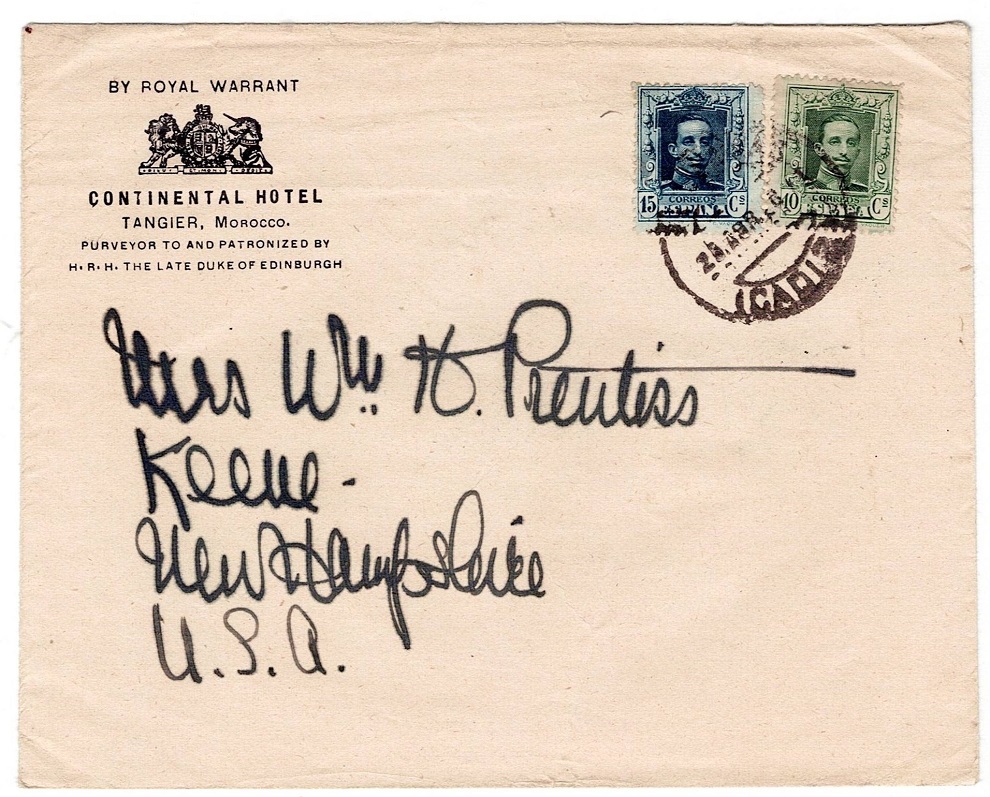 BY ROYAL WARRANT
CONTINENTAL HOTEL
TANGIER, MOROCCO.
PURVEYOR TO AND PATRONIZED BY
H.R.H. THE LATE DUKE OF EDINBURGH
CORREOS
15 Cs
CORREOS
40 Cs
ABR
(CADIZ)
Mrs Wm H. Prentiss
Keene.
New Hampshire
U.S.A.